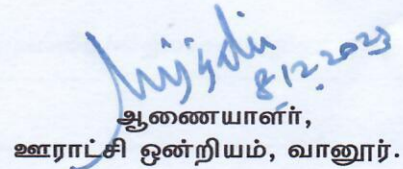 8/12/2023
ஆணையாளர்,
ஊராட்சி ஒன்றியம், வானூர்.